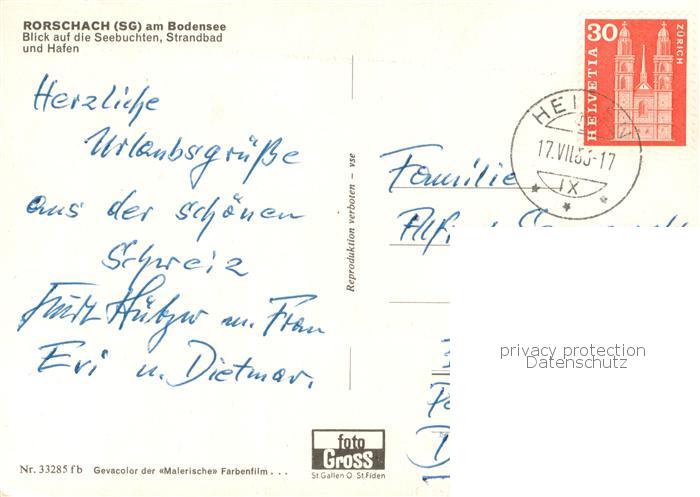 RORSCHACH (SG) am Bodensee
Blick auf die Seebuchten, Strandbad
und Hafen
Herzliche
Urlaubsgrüße
aus der schönen
Schweiz
u. Frau
Evi u. Dietmar.
Reproduktion verboten – vse
HELVETIA 30
ZÜRICH
17.VII.
-17
IX
Familie
Alfred
privacy protection
Datenschutz
foto
Gross
St.Gallen O St.Fiden
Nr. 33285 fb Gevacolor der «Malerische» Farbenfilm . . .